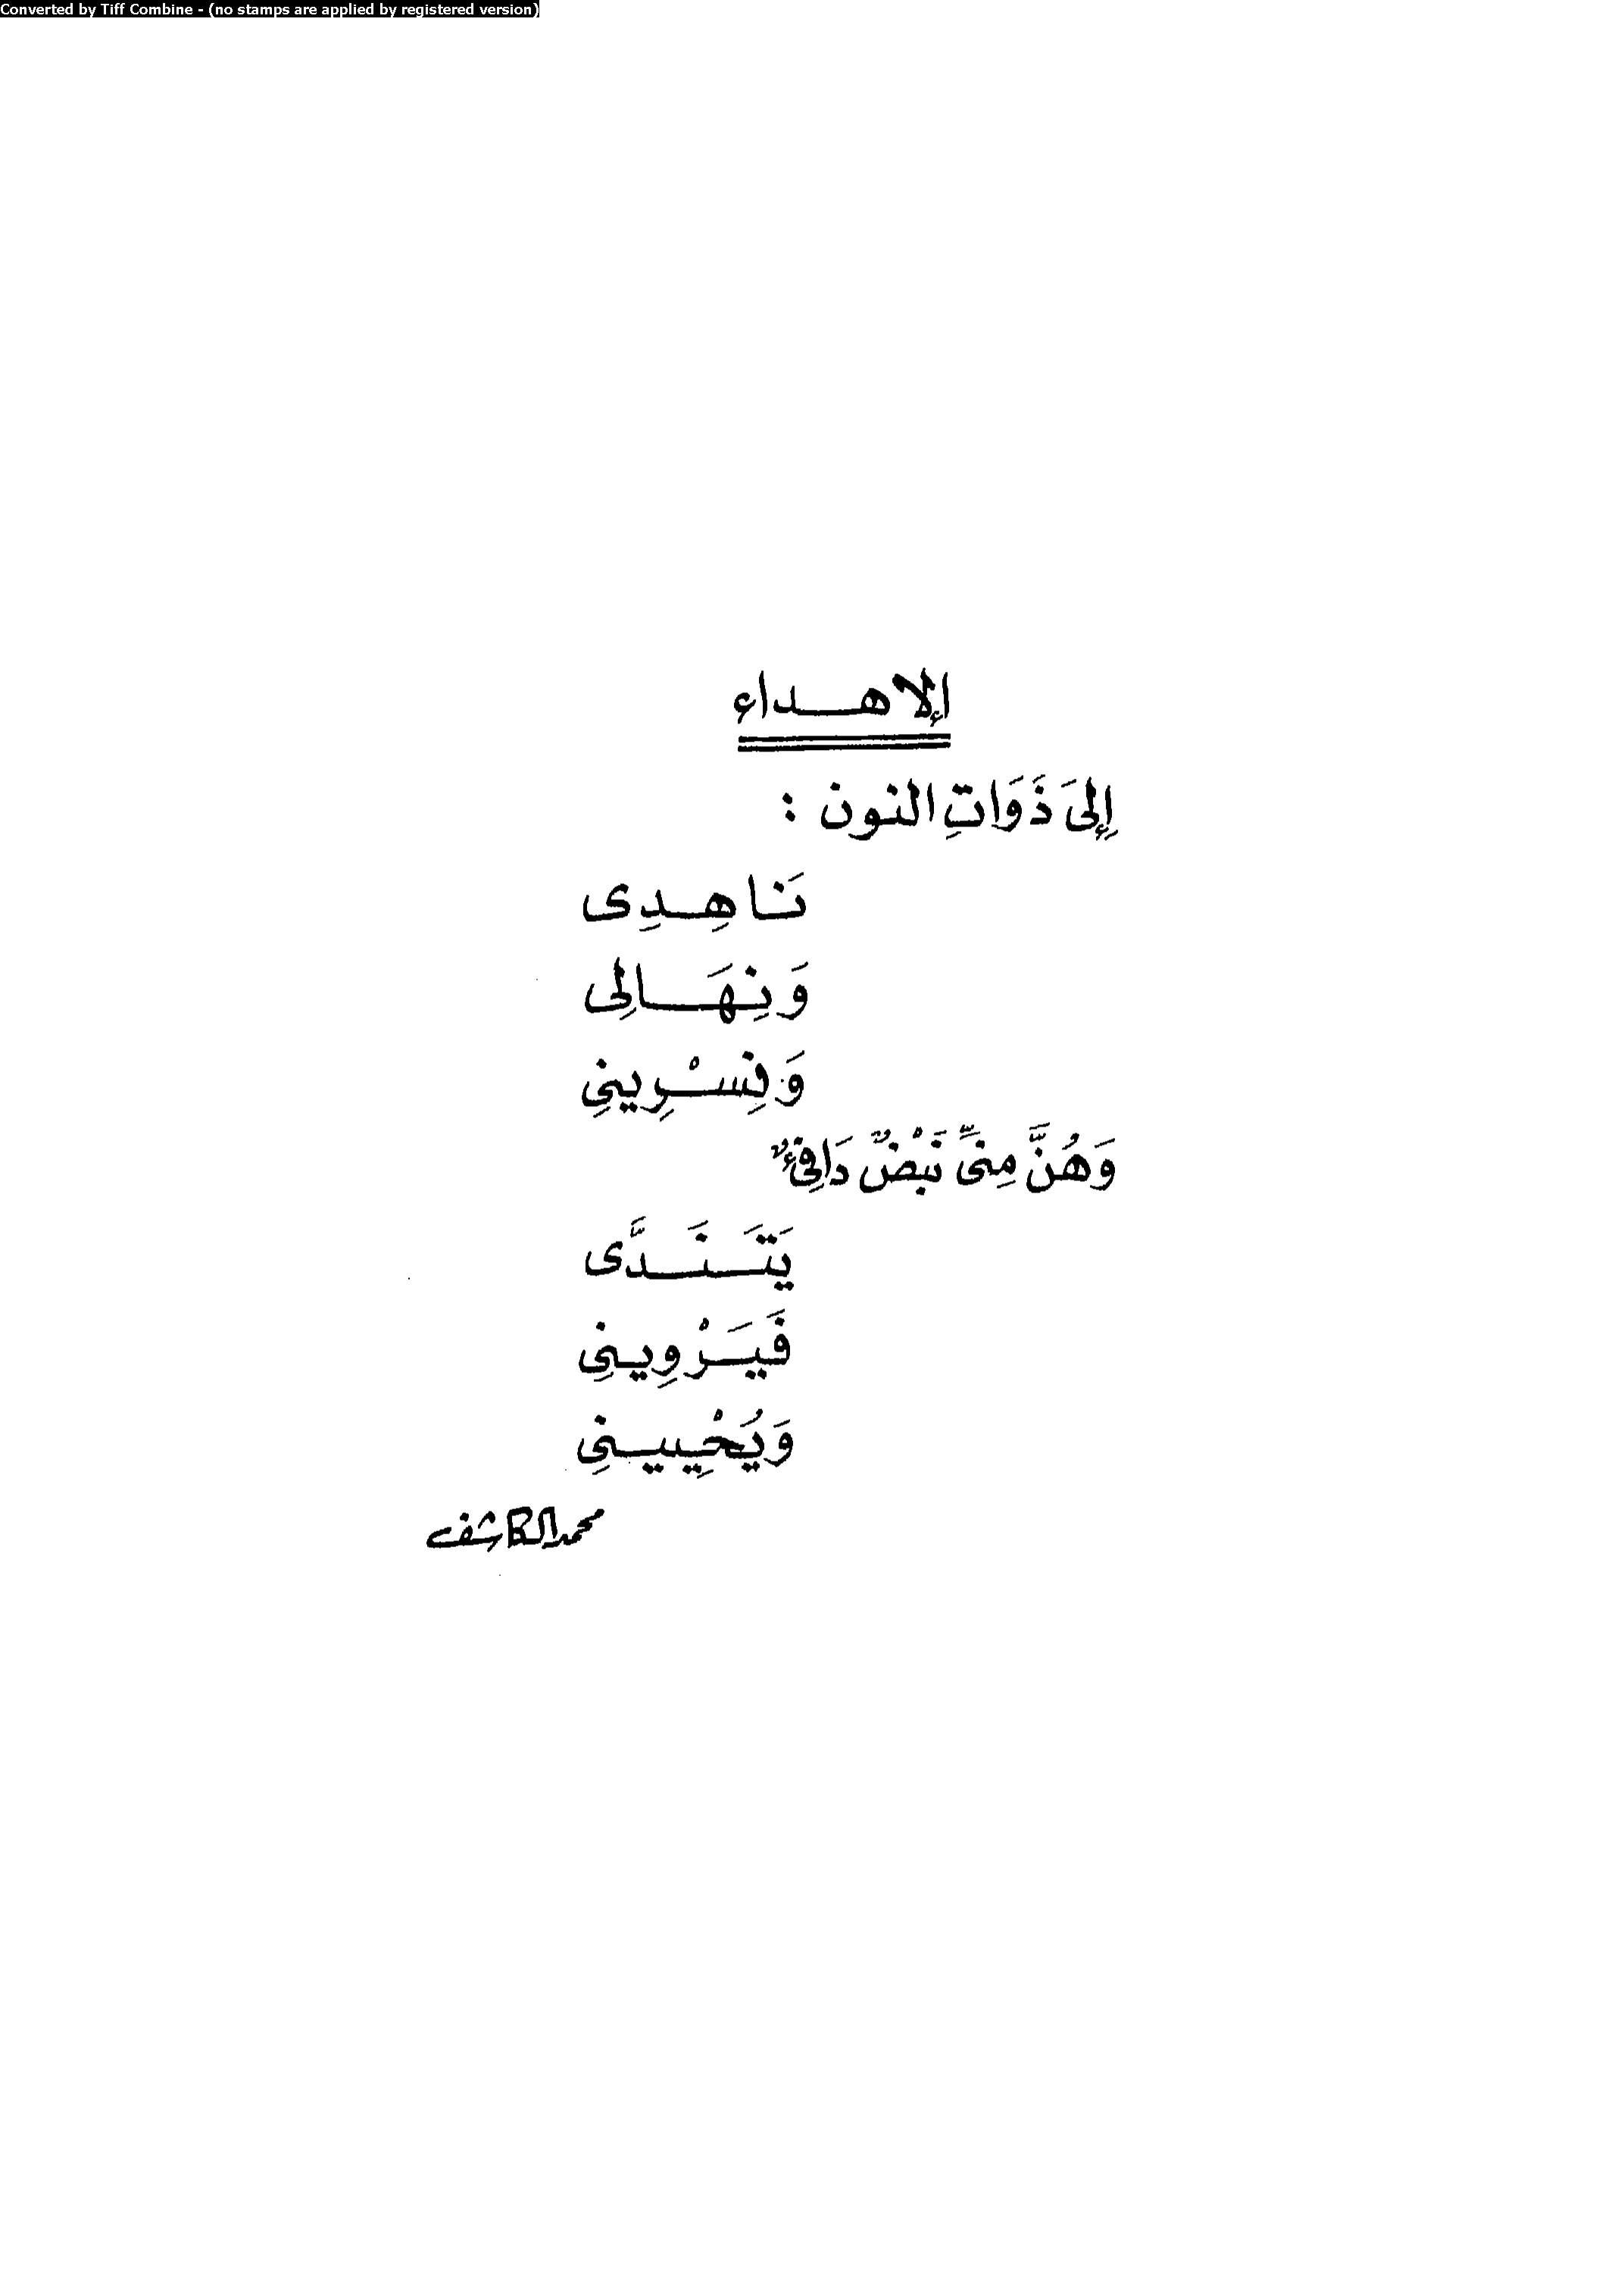 Converted by Tiff Combine - (no stamps are applied by registered version)
الإهداء
إِلىَ ذَوَاتِ النون :
نَاهِدِى
وَنِهَالِى
وَنِسْرِينِى
وَهُنَّ مِنىِّ نَبْضٌ دَافِئٌ
يَتَنَدَّى
فَيَرْوِينِى
وَيُحْيِينِى
محمد الكاشف